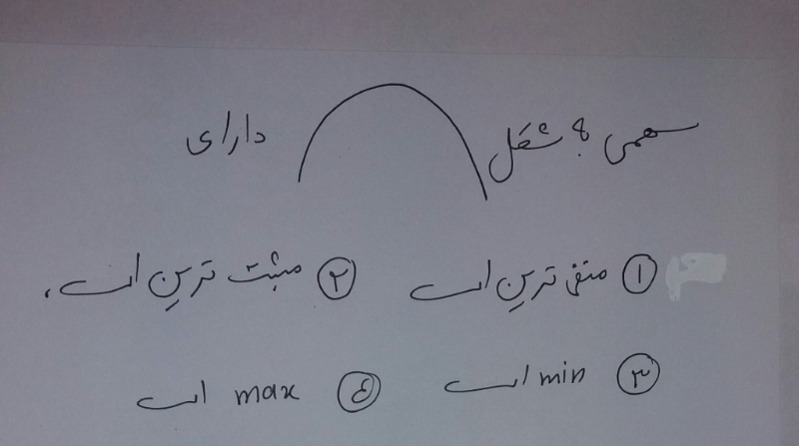 سهمی به شکل دارای
۱ منفی ترین است ۲ مثبت ترین است.
۳ min است ۴ max است